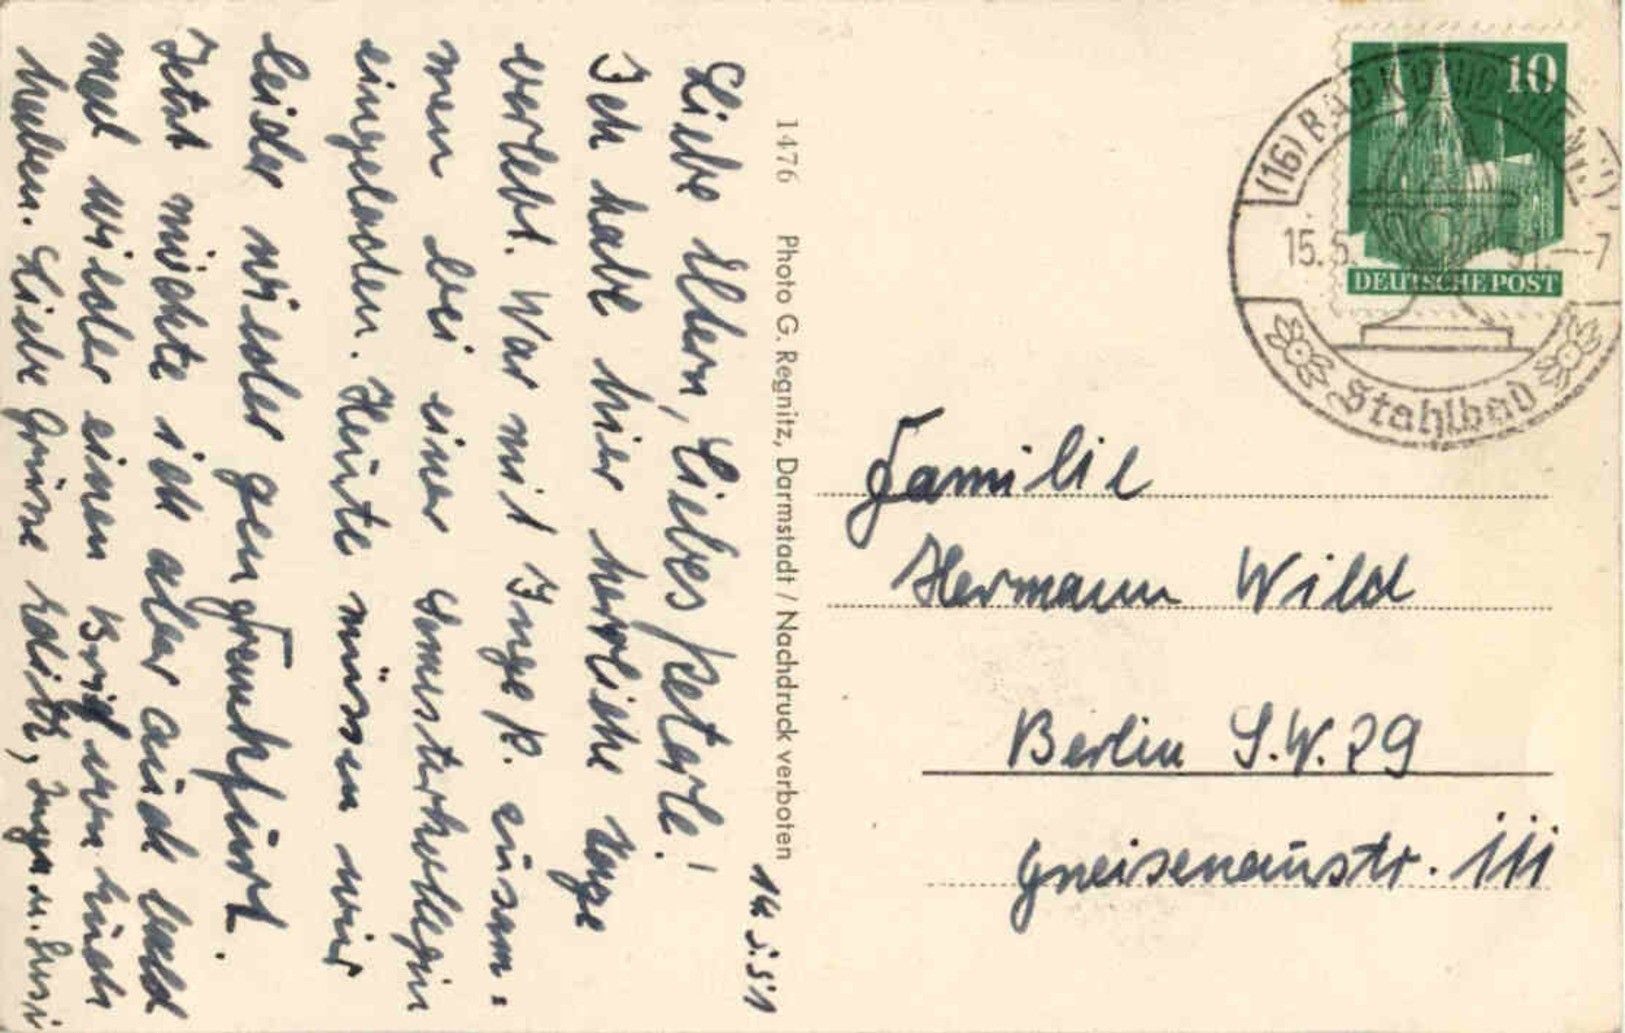 14.5.51
Liebe Eltern, Liebes Peterle!
Ich habe hier herrliche Tage
verlebt. War mit Inge P. zusam-
men bei einer
eingeladen. Heute müssen wir
leider wieder gen Frankfurt.
Jetzt möchte ich aber auch bald
mal wieder einen Brief von Euch
haben. Liebe Grüße Edith, Inge u. Susi
1476 Photo G. Regnitz, Darmstadt / Nachdruck verboten
10
DEUTSCHE POST
(16) BAD KÖNIG (ODENW.)
15.5.51.--7
Stahlbad
Familie
Hermann Wild
Berlin S.W. 29
Gneisenaustr. 111